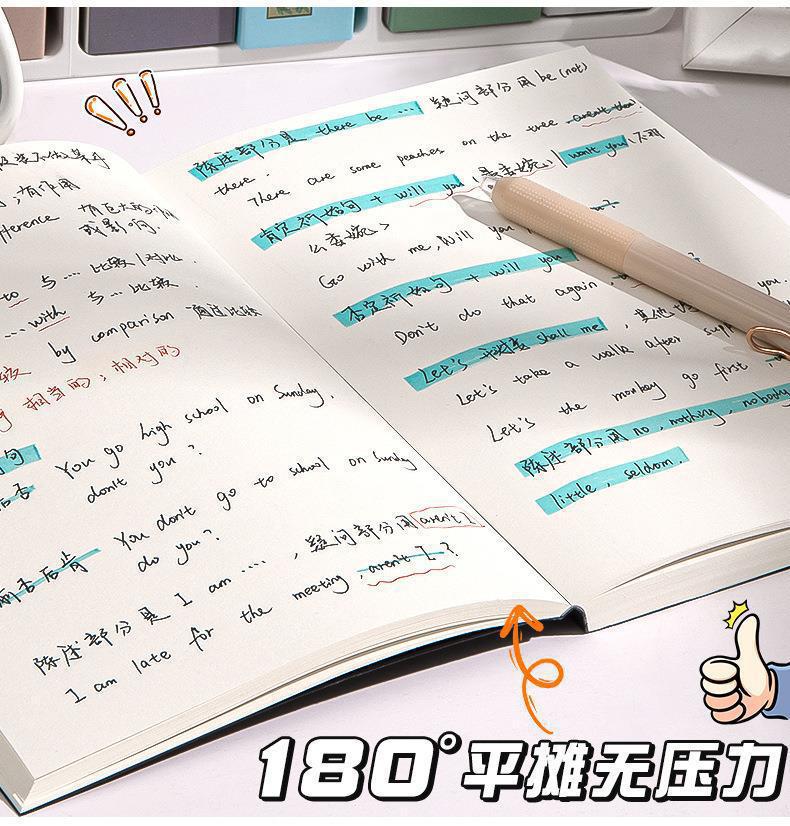 有作用
有巨大的
或影响.
to 与.... 比较/对比.
...with 与.... 比较.
by comparison 通过比较
相当的;相对的
You go high school on Sunday,
don't you?
You don't go to school on Sunday
do you?
前否后肯
陈述部分是 I am ...., 疑问部分用 aren't I.
I am late for the meeting, aren't I?
陈述部分是 there be ... 疑问部分用 be (not)
there.
There are some peaches on the tree aren't there
肯定祈始句 + will you (最委婉) / won't you (不
么委婉>
Go with me, Will you
否定祈始句 + will you
Don't do that again,
Let's 开头 shall me, 其他
you.
Let's take a walk after
Let's the monkey go first
陈述部分用 no, nothing, nobody
little, seldom.
180°平摊无压力